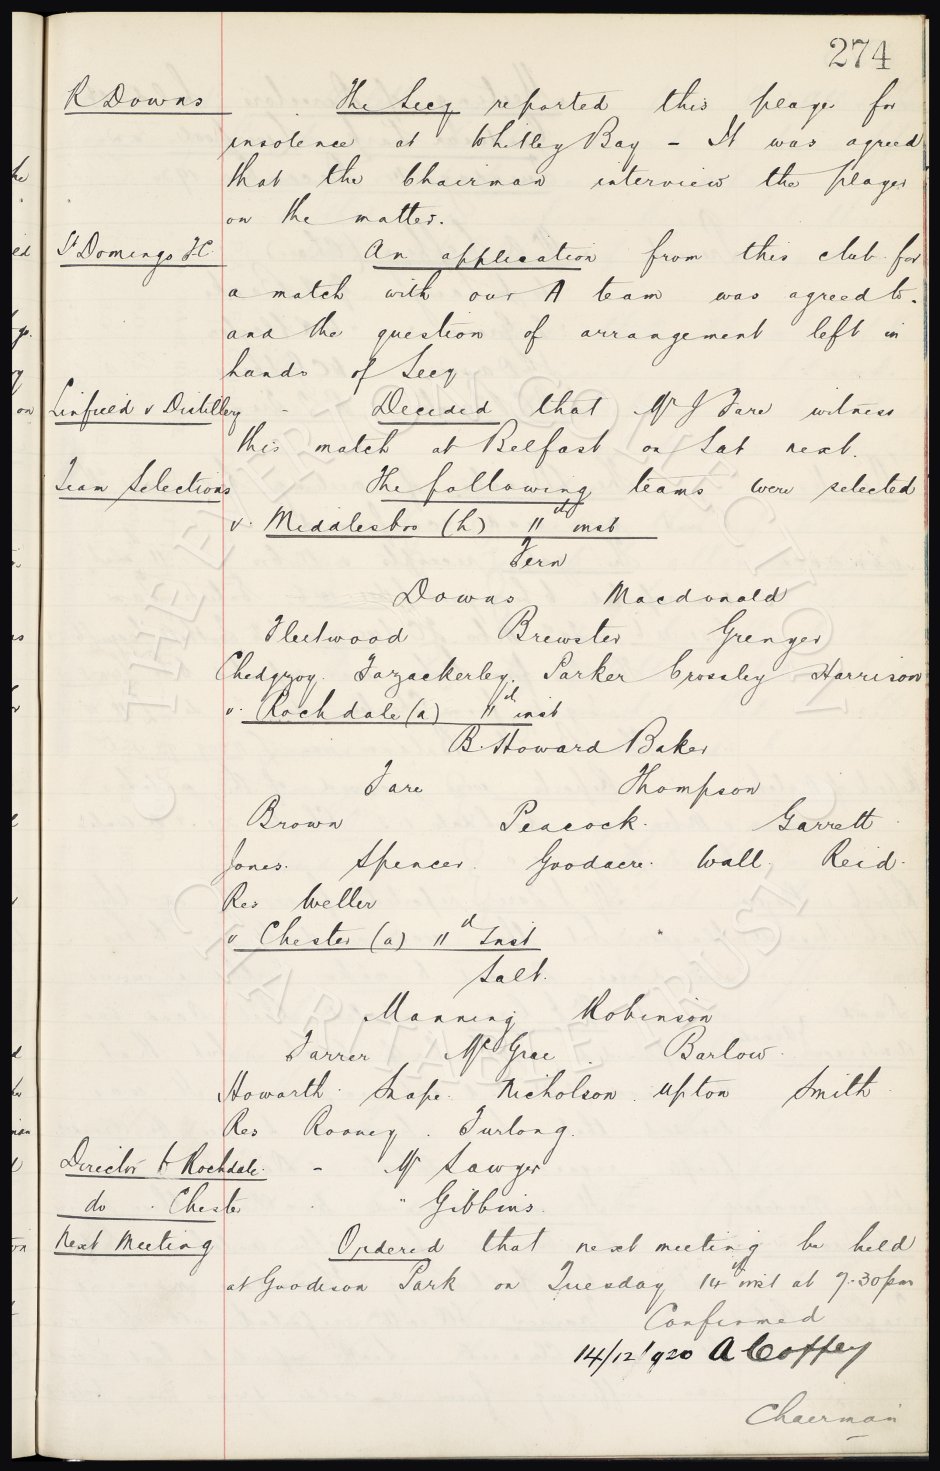 274
R Downs The Secy reported this player for
insolence at Whitley Bay – It was agreed
that the Chairman interview the player
on the matter.
St Domingo F.C. An application from this club for
a match with our A team was agreed to.
and the question of arrangement left in
hands of Secy
Linfield v Distillery - Decided that Mr J Fare witness
this match at Belfast on Sat next.
Team Selections The following teams were selected
v. Middlesbro (h) 11th inst
Fern
Downs Macdonald
Fleetwood Brewster Grenyer
Chedgzoy. Fazackerley. Parker Crossley Harrison
v. Rochdale (a) 11th inst
B. Howard Baker
Fare Thompson
Brown Peacock. Garrett
Jones. Spencer. Goodacre. Wall. Reid.
Res Weller
v Chester (a) 11th Inst
Salt.
Manning Robinson
Farrer McGrae. Barlow.
Howarth. Snape. Nicholson. Upton Smith
Res Rooney. Furlong.
Director to Rochdale. - Mr Sawyer
do. Chester " Gibbins.
Next Meeting Ordered that next meeting be held
at Goodison Park on Tuesday 14th inst at 7.30pm
Confirmed
14/12/1920 A Coffey
Chairman
THE EVERTON COLLECTION
CHARITABLE TRUST